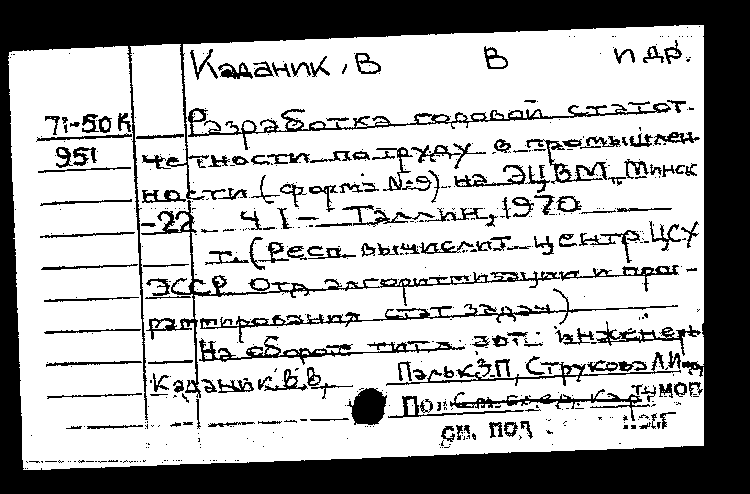 Каданик, В В и др.
71-50К Разработка годовой статот-
951 четности по труду в промышлен-
ности (форма №9) на ЭЦВМ „Минск
-22. Ч I- Таллин, 1970
т. (Респ. вычислит. центр ЦСУ
ЭССР Отд алгоритмизации и прог-
раммирования стат задач)
На обороте тит. л. авт.: инженеры
Каданик В.В, Пальк З.П, Струкова Л.И
По см. след. карт
см. под